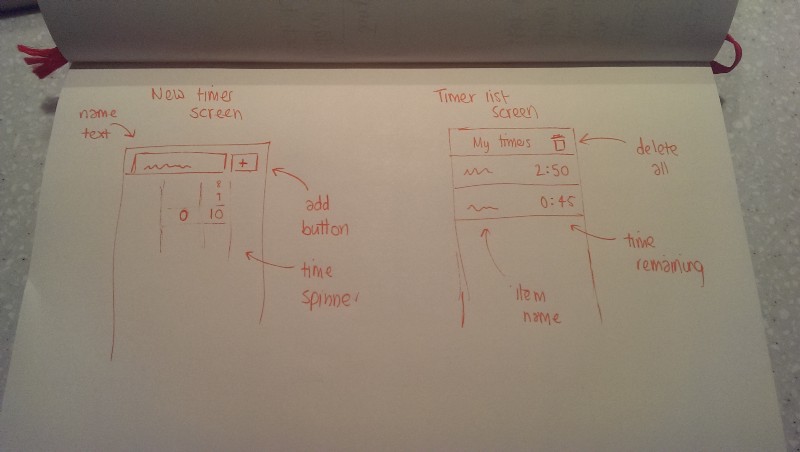 New timer
screen
name
text
+
8
9
0 10
add
button
time
spinner
Timer list
screen
My timers
2:50
0:45
delete
all
time
remaining
item
name